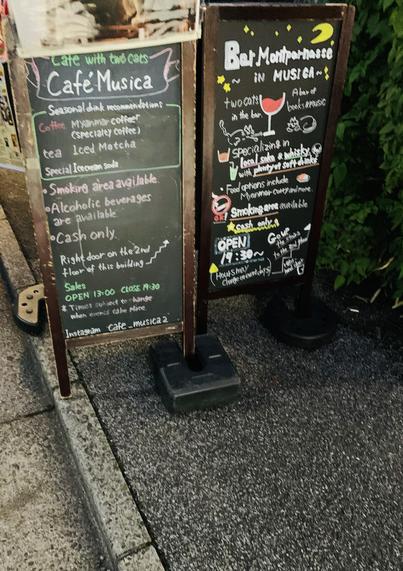 Cafe with two cats
Café Musica
Seasonal drink recommendations
Coffee Myanmar coffee
(specialty coffee)
tea Iced Matcha
Special Icecream soda
Smoking area available
Alcoholic beverages
are available
Cash only
Right door on the 2nd
floor of this building
Sales
OPEN 13:00 CLOSE 19:30
* Times subject to change
when events take place
Instagram cafe_musica2
Bar Montparnasse
IN MUSICA
two cats
in the bar.
A bar of
books & music
specializing in
local soda & whisky,
with plenty of soft drinks.
Food options include
Myanmar curry and more.
OK!
Smoking area available
cash only
OPEN
19:30~
Go up
the stairs
Hours may
change on event days